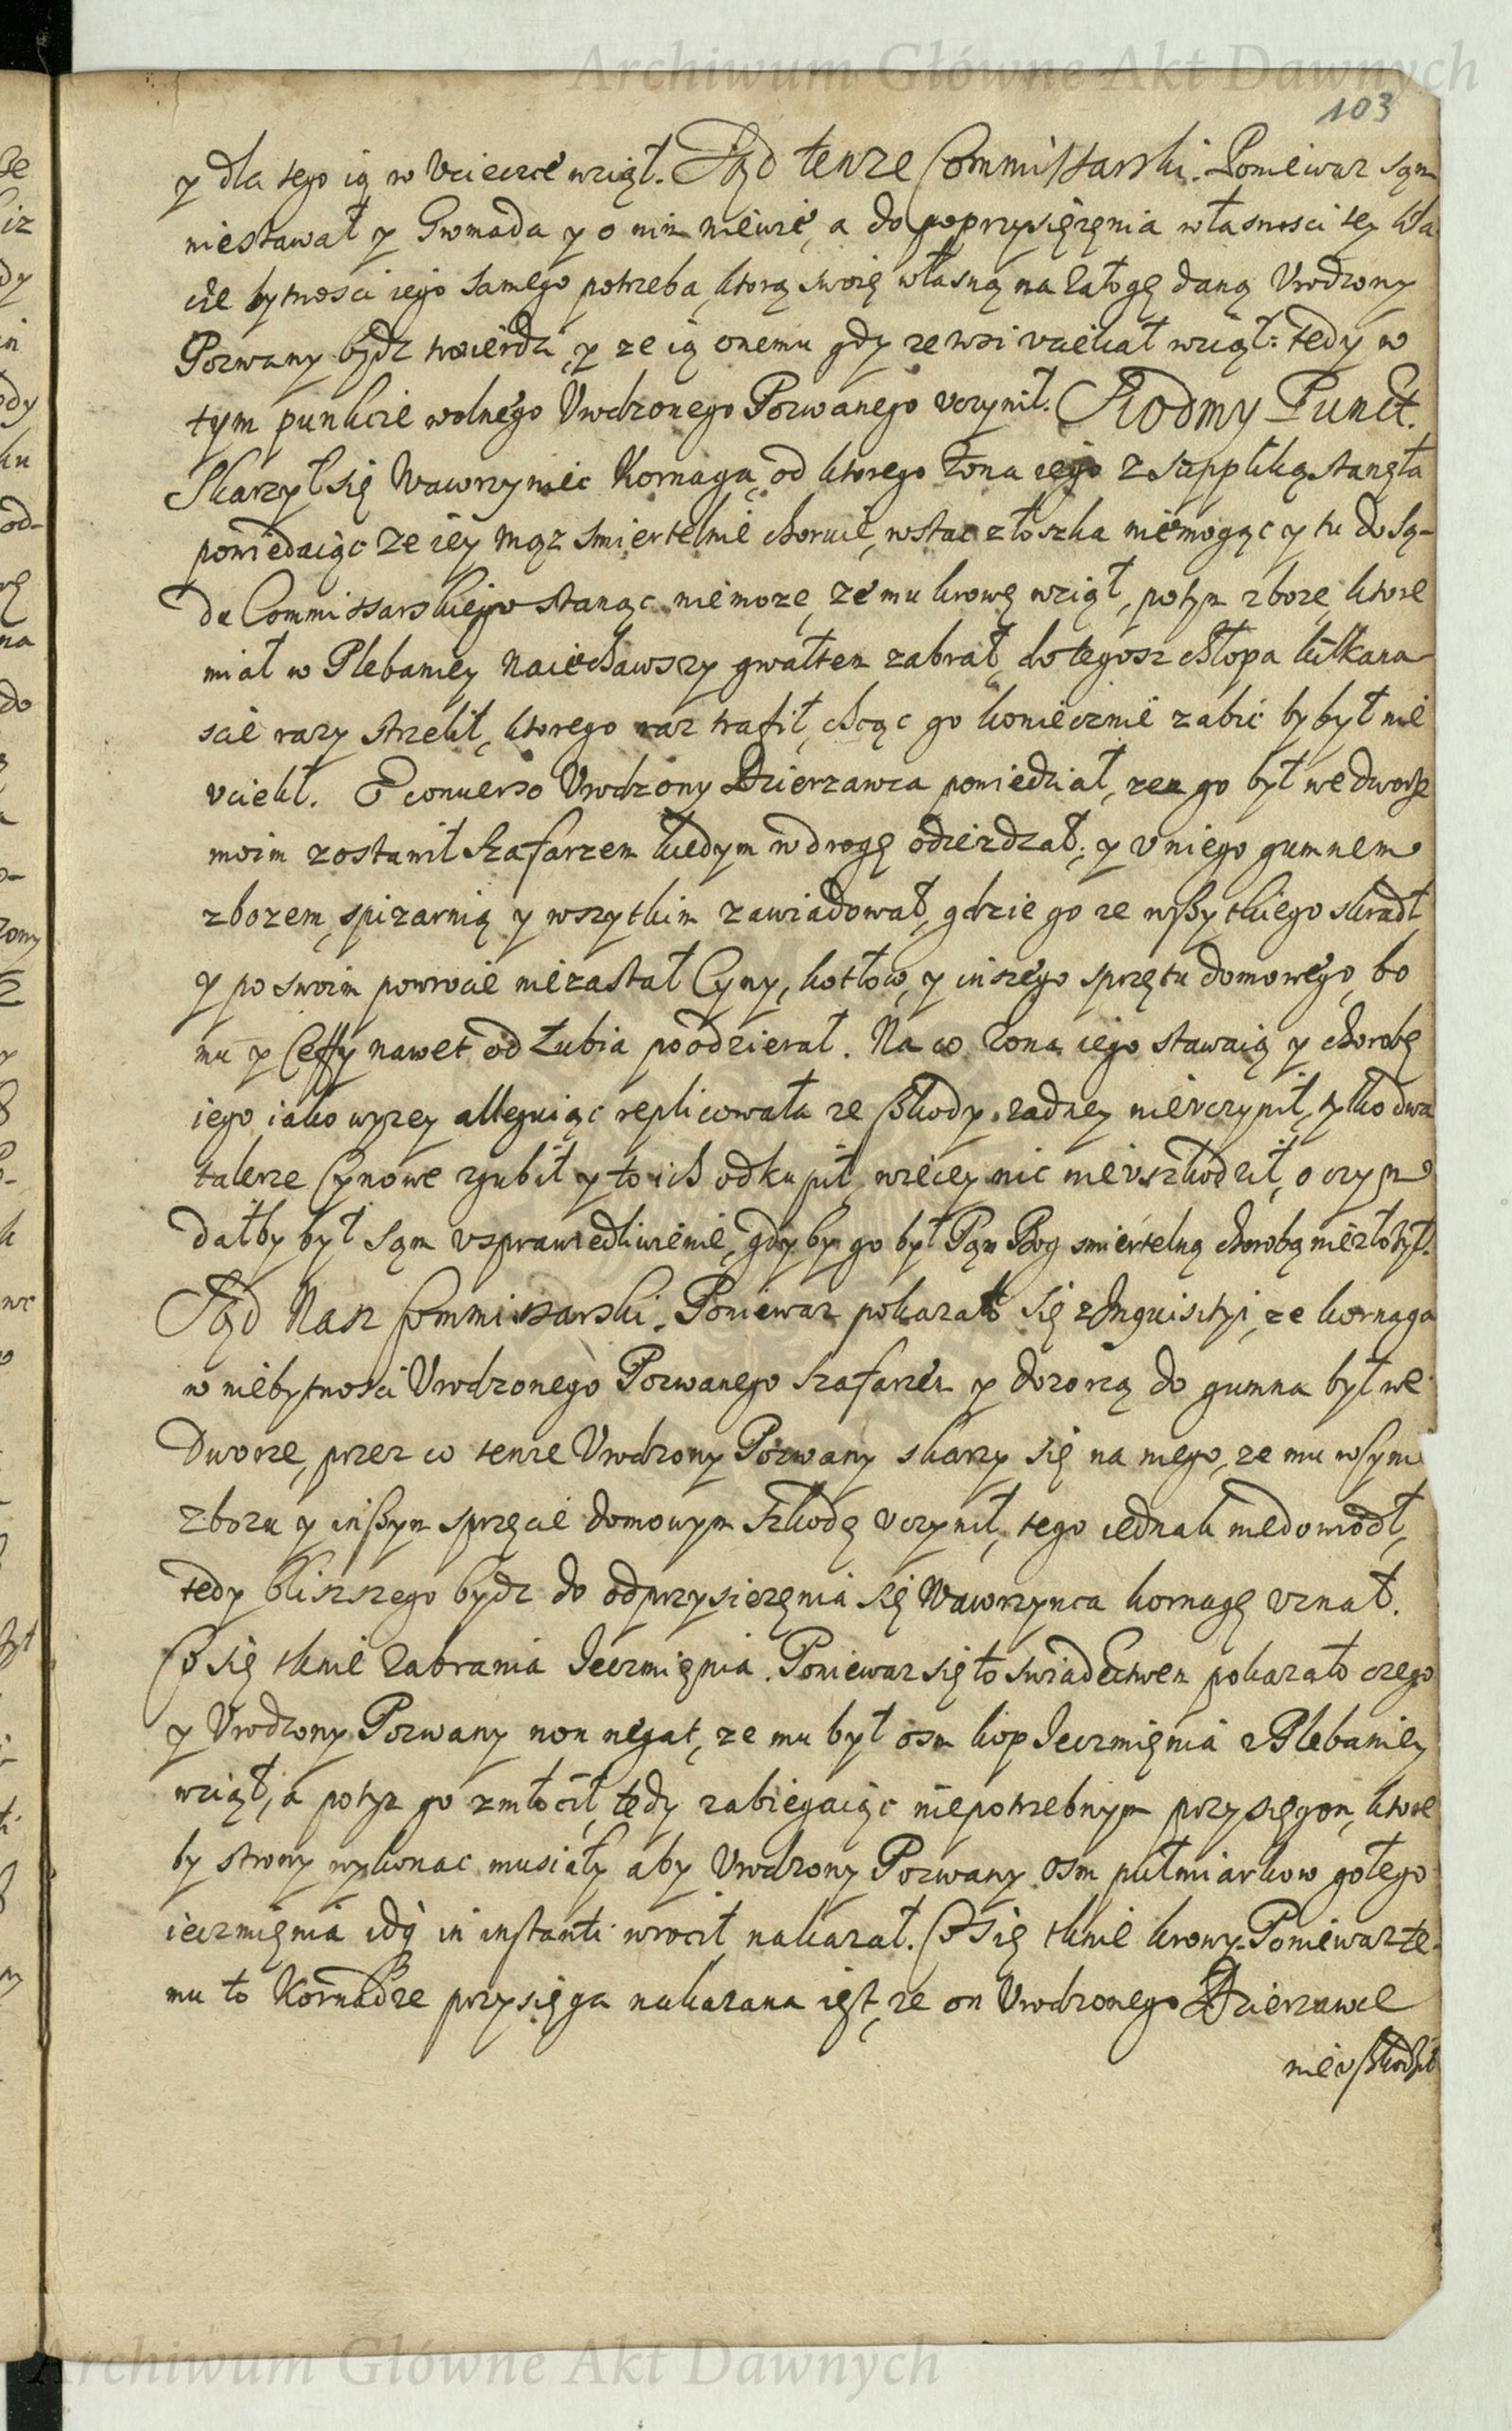 Archiwum Główne Akt Dawnych
103
y dla tego ią w vciecze wziął. Sąd tenze Commissarski. Poniewaz sąm
niestawał y Gromada y o nim niewie, a do poprzysięzenia własnosci tey kła
cze bytnosci iego samego potrzeba, ktorą swoię własną na załogę daną Vrodzony
Pozwany bydz twierdzi, y ze ią onemu gdy ze wsi vciekał wziął: tedy w
tym punkcie wolnego Vrodzonego Pozwanego vczynił. Siodmy Punct.
Skarzył się Wawrzyniec Kornaga, od ktorego Zona iego z suppliką stanęła
powiedaiąc ze iey mąz smiertelnie choruie, wstac z łoszka niemogąc y tu do Są-
du Commissarskiego stanąc niemoze, ze mu krowę wziął, potym zboze, ktore
miał w Plebaniey naiechawszy gwałtem zabrał, do tegosz chłopa kilkana
scie razy strzelił, ktorego raz trafił, chcąc go koniecznie zabic by był nie
vciekł. E conuerso Vrodzony Dzierzawca powiedział, zem go był we dworze
moim zostawił szafarzem kiedym w drogę odiezdzał, y v niego gumnem
zbozem, spizarnią y wszytkim zawiadował, gdzie go ze wszytkiego skradł,
y po swoim powrocie niezastał Cyny, kotłow, y inszego sprzętu domowego, bo
mu y Ceffy nawet od Zubia poodzierał. Na co Zona iego stawaią y chorobę
iego iako wyzey alleguiąc replicowała ze szkody zadney nievczynił, tylko dwa
talerze Cynowe zgubił y to ich odkupił, więcey nic nievszkodził, o czym
dałby był sąm vsprawiedliwienie, gdyby go był Pąn Bog smiertelną chorobą niezłozył.
Sąd Nasz Commissarski. Poniewaz pokazało się z Inquisityi, ze kornaga
w niebytnosci Vrodzonego Pozwanego szafarzem y dozorcą do gumna był we
Dworze, przez co tenze Vrodzony Pozwany skarzy się na niego, ze mu w
zbozu y inszym sprzęcie domowym szkodę vczynił, tego iednak niedowiodł,
tedy bliszszego bydz do odprzysięzenia się Wawrzynca kornagę vznał.
Co się tknie zabrania Ieczmięnia. Poniewaz się to swiadectwem pokazało czego
y Vrodzony Pozwany non negat, ze mu był osm kop Ieczmięnia z Plebaniey
wziął, a potym go zmłocił, tedy zabiegaiąc niepotrzebnym przysięgom, ktore
by strony wykonac musiały aby Vrodzony Pozwany osm pułmiarkow gołego
ieczmięnia idq in instanti wrocił nakazał. Co się tknie krowy. Poniewaz te-
mu to Kornadze przysięga nakazana iest, ze on Vrodzonego Dzierzawce
nievszkodził
Archiwum Główne Akt Dawnych